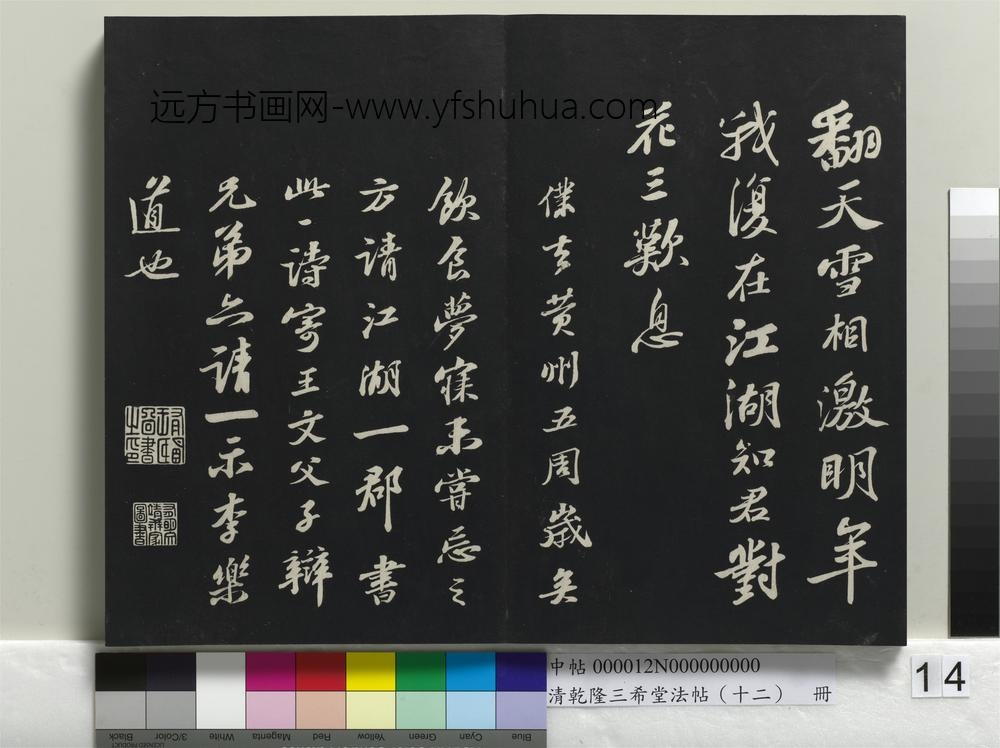 远方书画网-www.yfshuhua.com
翻天雪相激明年
我復在江湖知君對
花三歎息
僕去黄州五周歲矣
飲食夢寐未嘗忘之
方請江湖一郡書
此一詩寄王文父子辯
兄弟亦請一示李樂
道也
中帖 000012N000000000
清乾隆三希堂法帖（十二） 冊
14
Black
3/Color
White
Magenta
Red
Yellow
Green
Cyan
Blue